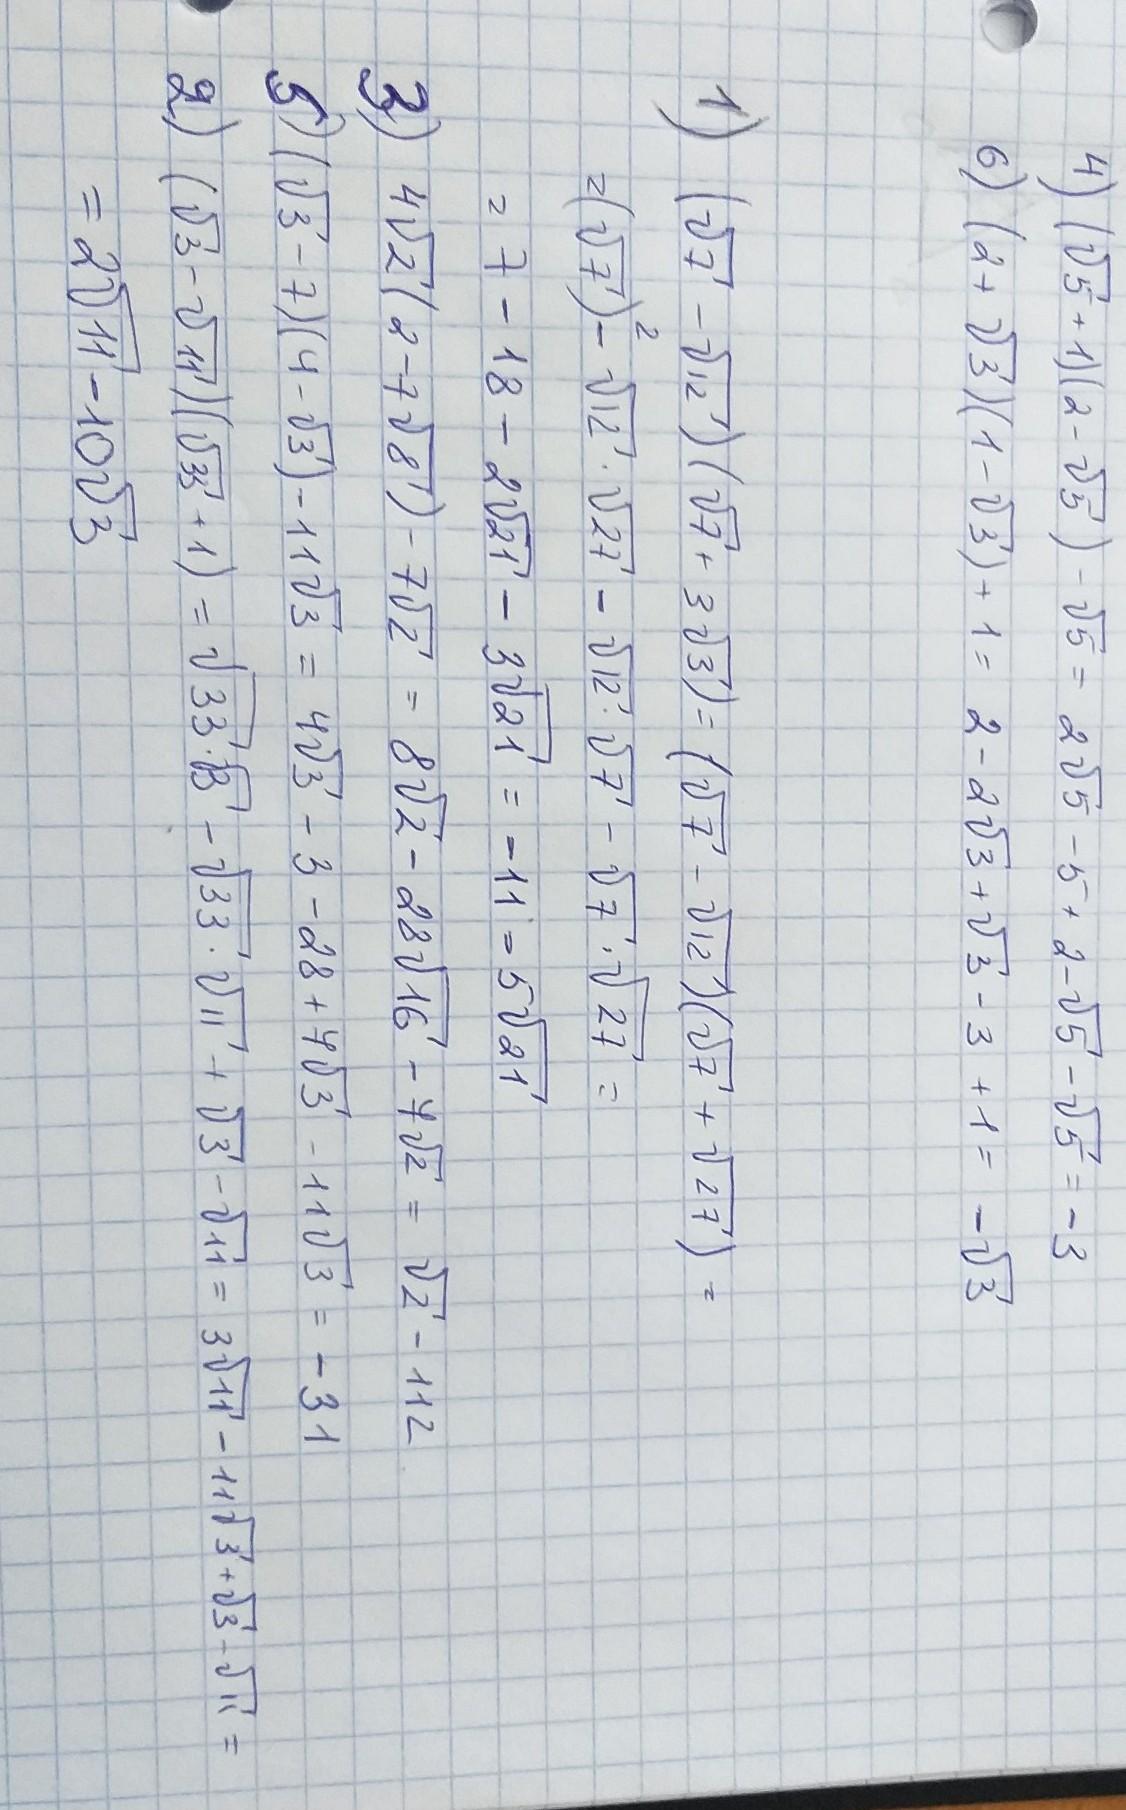 4) (√5+1)(2-√5)-√5 = 2√5-5+2-√5-√5 = -3
6) (2+√3)(1-√3)+1 = 2-2√3+√3-3+1 = -√3
1) (√7-√12)(√7+3√3) = (√7-√12)(√7+√27) =
=(√7)²-√12·√27-√12·√7-√7·√27 =
= 7-18-2√21-3√21 = -11=5√21
3) 4√2(2-7√8)-7√2 = 8√2-28√16-7√2 = √2-112
5) (√3-7)(4-√3)-11√3 = 4√3-3-28+7√3-11√3 = -31
2) (√3-√11)(√33+1) = √33·√3-√33·√11+√3-√11 = 3√11-11√3+√3-√11 =
= 2√11-10√3